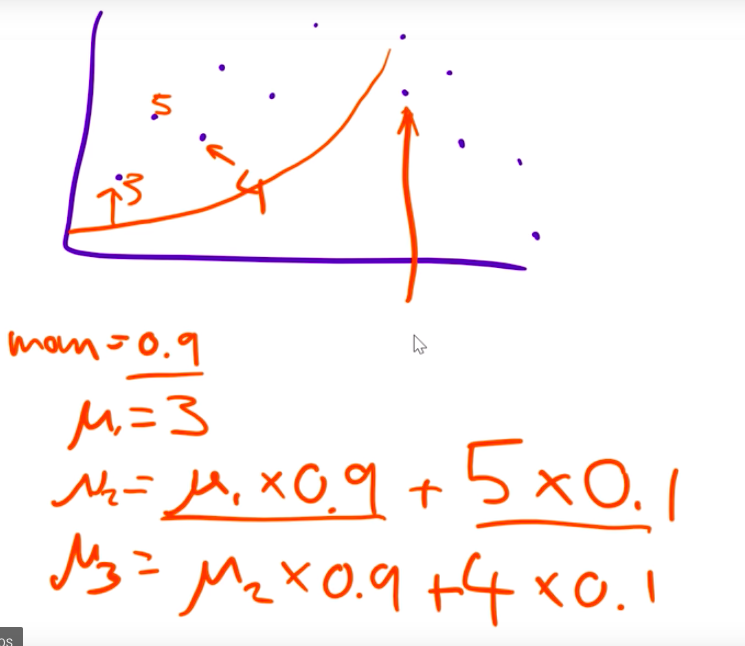 5
3
4
mom = 0.9
μ₁ = 3
μ₂ = μ₁ × 0.9 + 5 × 0.1
μ₃ = μ₂ × 0.9 + 4 × 0.1